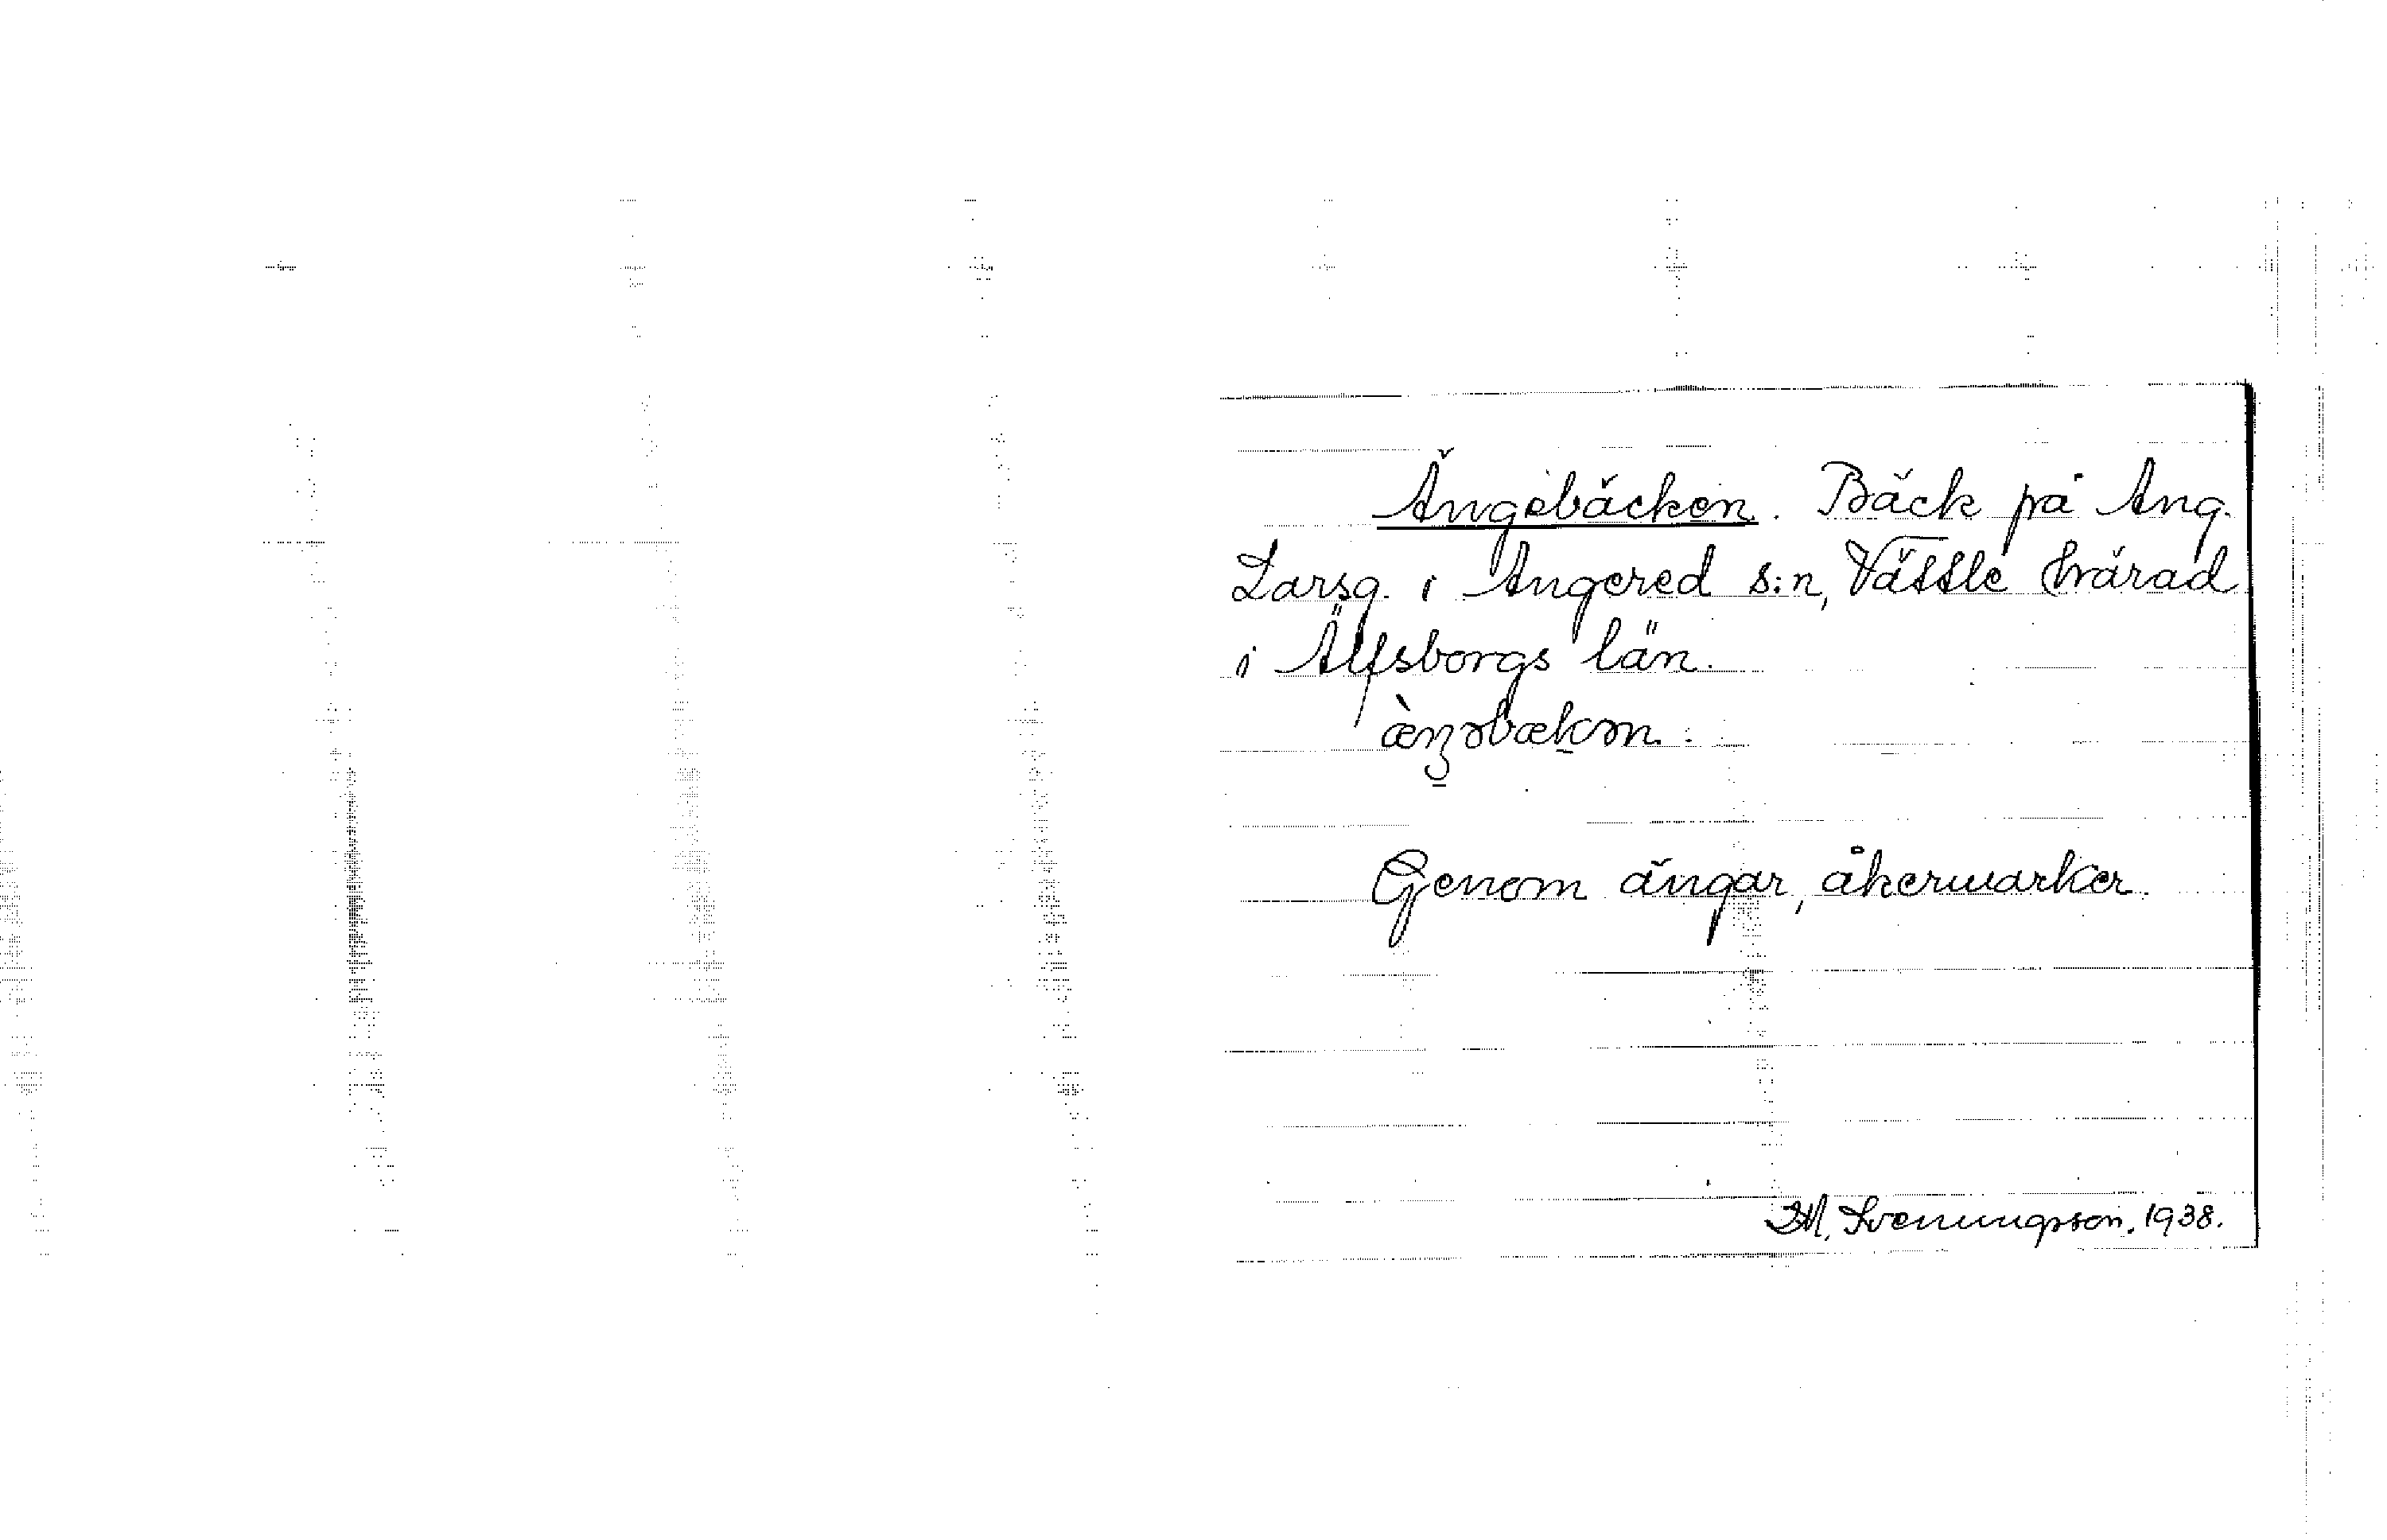 Ängebäcken. Bäck på Ang.
Larsg. i Angered s:n, Vättle härad
i Älfsborgs län.
Genom ängar, åkermarker.
M. Svenungsson. 1938.